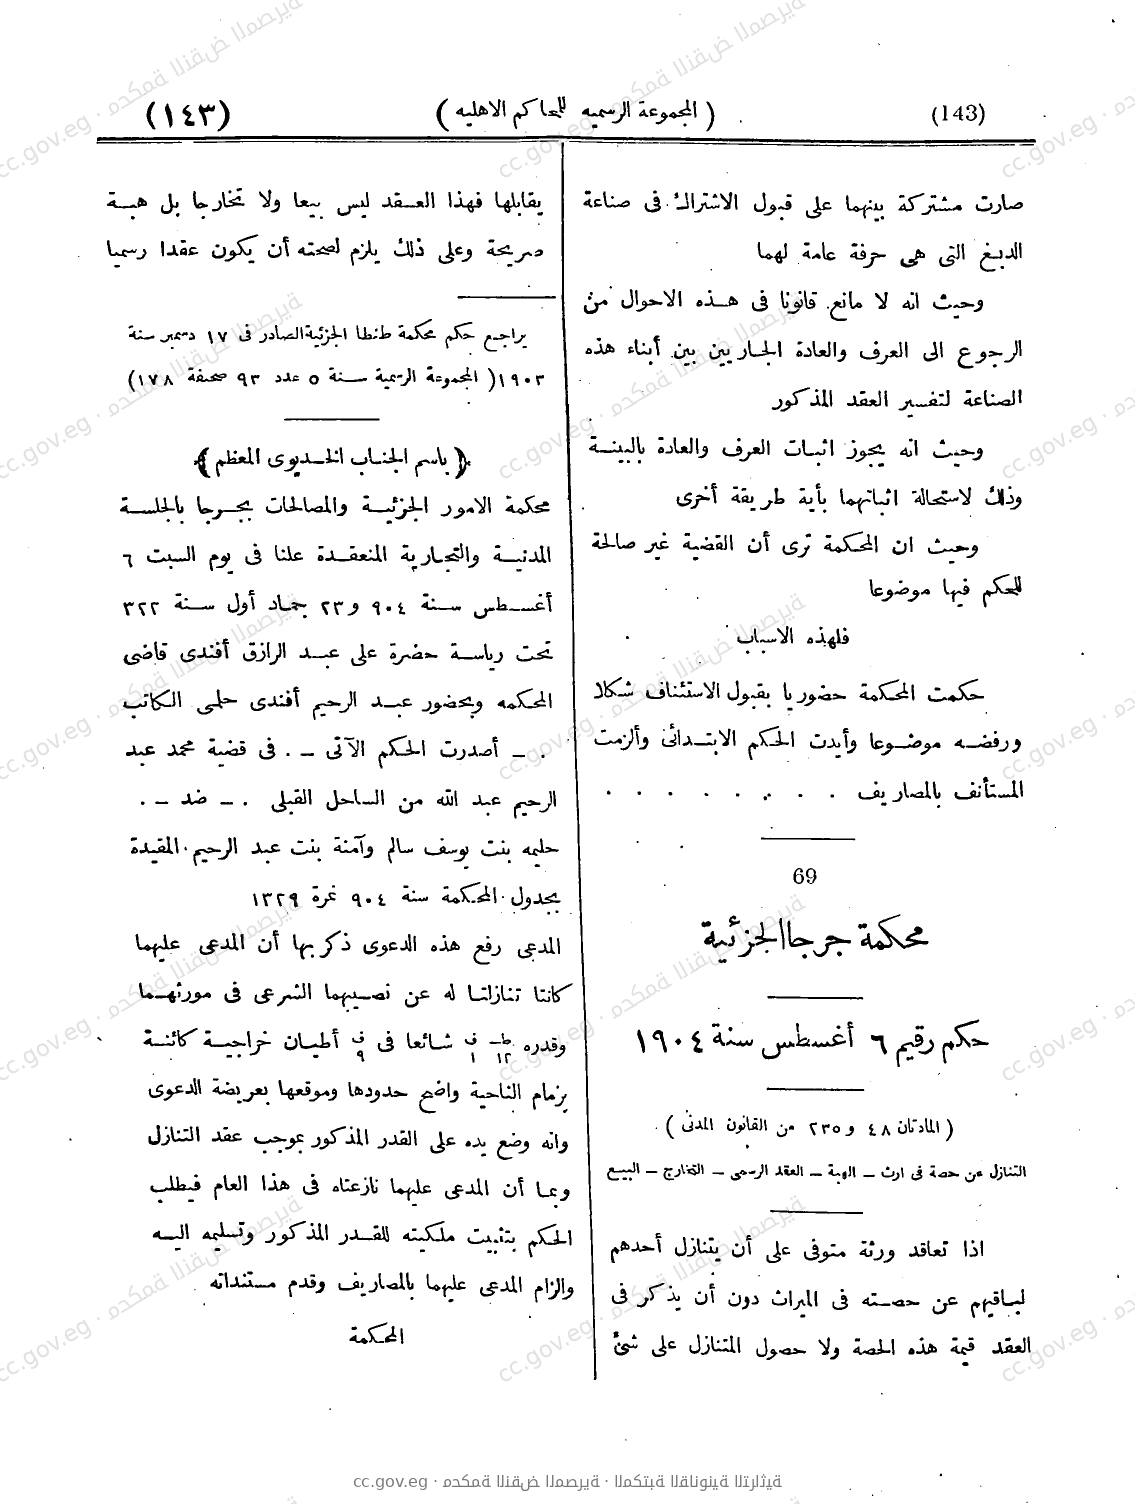 (143)
( المجموعة الرسميه للمحاكم الاهليه )
(١٤٣)
صارت مشتركة بينهما على قبول الاشتراك فى صناعة
الدبغ التى هى حرفة عامة لهما
وحيث انه لا مانع قانونا فى هذه الاحوال من
الرجوع الى العرف والعادة الجاريين بين أبناء هذه
الصناعة لتفسير العقد المذكور
وحيث انه يجوز اثبات العرف والعادة بالبينة
وذلك لاستحالة اثباتهما بأية طريقة أخرى
وحيث ان المحكمة ترى أن القضية غير صالحة
للحكم فيها موضوعا
فلهذه الاسباب
حكمت المحكمة حضوريا بقبول الاستئناف شكلا
ورفضه موضوعا وأيدت الحكم الابتدائى وألزمت
المستأنف بالمصاريف . . . . . . . .
69
محكمة جرجا الجزئية
حكم رقيم ٦ أغسطس سنة ١٩٠٤
( المادتان ٤٨ و ٢٣٥ من القانون المدنى )
التنازل عن حصة فى ارث ــ الهبة ــ العقد الرسمى ــ التخارج ــ البيع
اذا تعاقد ورثة متوفى على أن يتنازل أحدهم
لباقيهم عن حصته فى الميراث دون أن يذكر فى
العقد قيمة هذه الحصة ولا حصول المتنازل على شئ
يقابلها فهذا العقد ليس بيعا ولا تخارجا بل هبة
صريحة وعلى ذلك يلزم لصحته أن يكون عقدا رسميا
يراجع حكم محكمة طنطا الجزئية الصادر فى ١٧ دسمبر سنة
١٩٠٣ ( المجموعة الرسمية سنة ٥ عدد ٩٣ صحيفة ١٧٨)
﴿ باسم الجناب الخديوى المعظم ﴾
محكمة الامور الجزئية والمصالحات بجرجا بالجلسة
المدنية والتجارية المنعقدة علنا فى يوم السبت ٦
أغسطس سنة ٩٠٤ و٢٣ جماد أول سنة ٣٢٢
تحت رياسة حضرة على عبد الرازق أفندى قاضى
المحكمه وبحضور عبد الرحيم أفندى حلمى الكاتب
. ــ أصدرت الحكم الآتى ــ . فى قضية محمد عبد
الرحيم عبد الله من الساحل القبلى . ــ ضد ــ .
حليمه بنت يوسف سالم وآمنة بنت عبد الرحيم المقيدة
بجدول المحكمة سنة ٩٠٤ نمرة ١٣٢٩
المدعى رفع هذه الدعوى ذكر بها أن المدعى عليهما
كانتا تنازلتا له عن نصيبهما الشرعى فى مورثهما
وقدره ط ١٢ ف ١ شائعا فى ف ٩ أطيان خراجية كائنة
بزمام الناحية واضح حدودها وموقعها بعريضة الدعوى
وانه وضع يده على القدر المذكور بموجب عقد التنازل
وبما أن المدعى عليهما نازعتاه فى هذا العام فيطلب
الحكم بتثبيت ملكيته للقدر المذكور وتسليمه اليه
والزام المدعى عليهما بالمصاريف وقدم مستنداته
المحكمة
cc.gov.eg · محكمة النقض المصرية · المكتبة القانونية التراثية